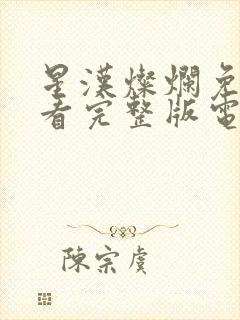 星漢燦爛免
看完整版電
陳宗虞